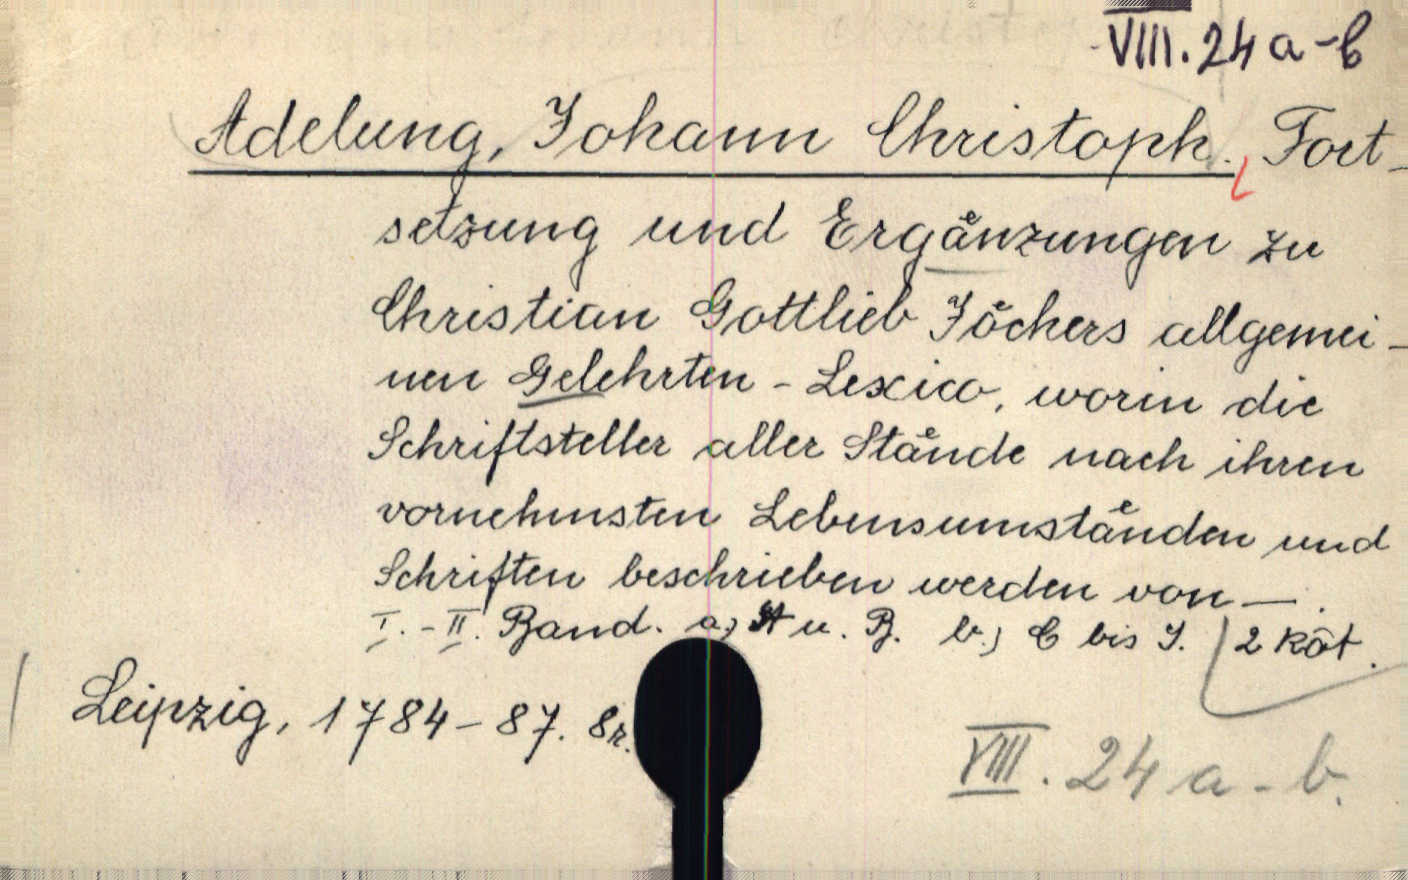 VIII. 24 a-b
Adelung, Johann Christoph. Fort-
setzung und Ergaͤnzungen zu
Christian Gottlieb Joͤchers allgemei-
nen Gelehrten-Lexico, worin die
Schriftsteller aller Staͤnde nach ihren
vornehmsten Lebensumstaͤnden und
Schriften beschrieben werden von —.
I.-II. Band. a.) A u. B. b.) C bis J. 2 köt.
Leipzig, 1784-87. 8r.
VIII. 24 a-b.